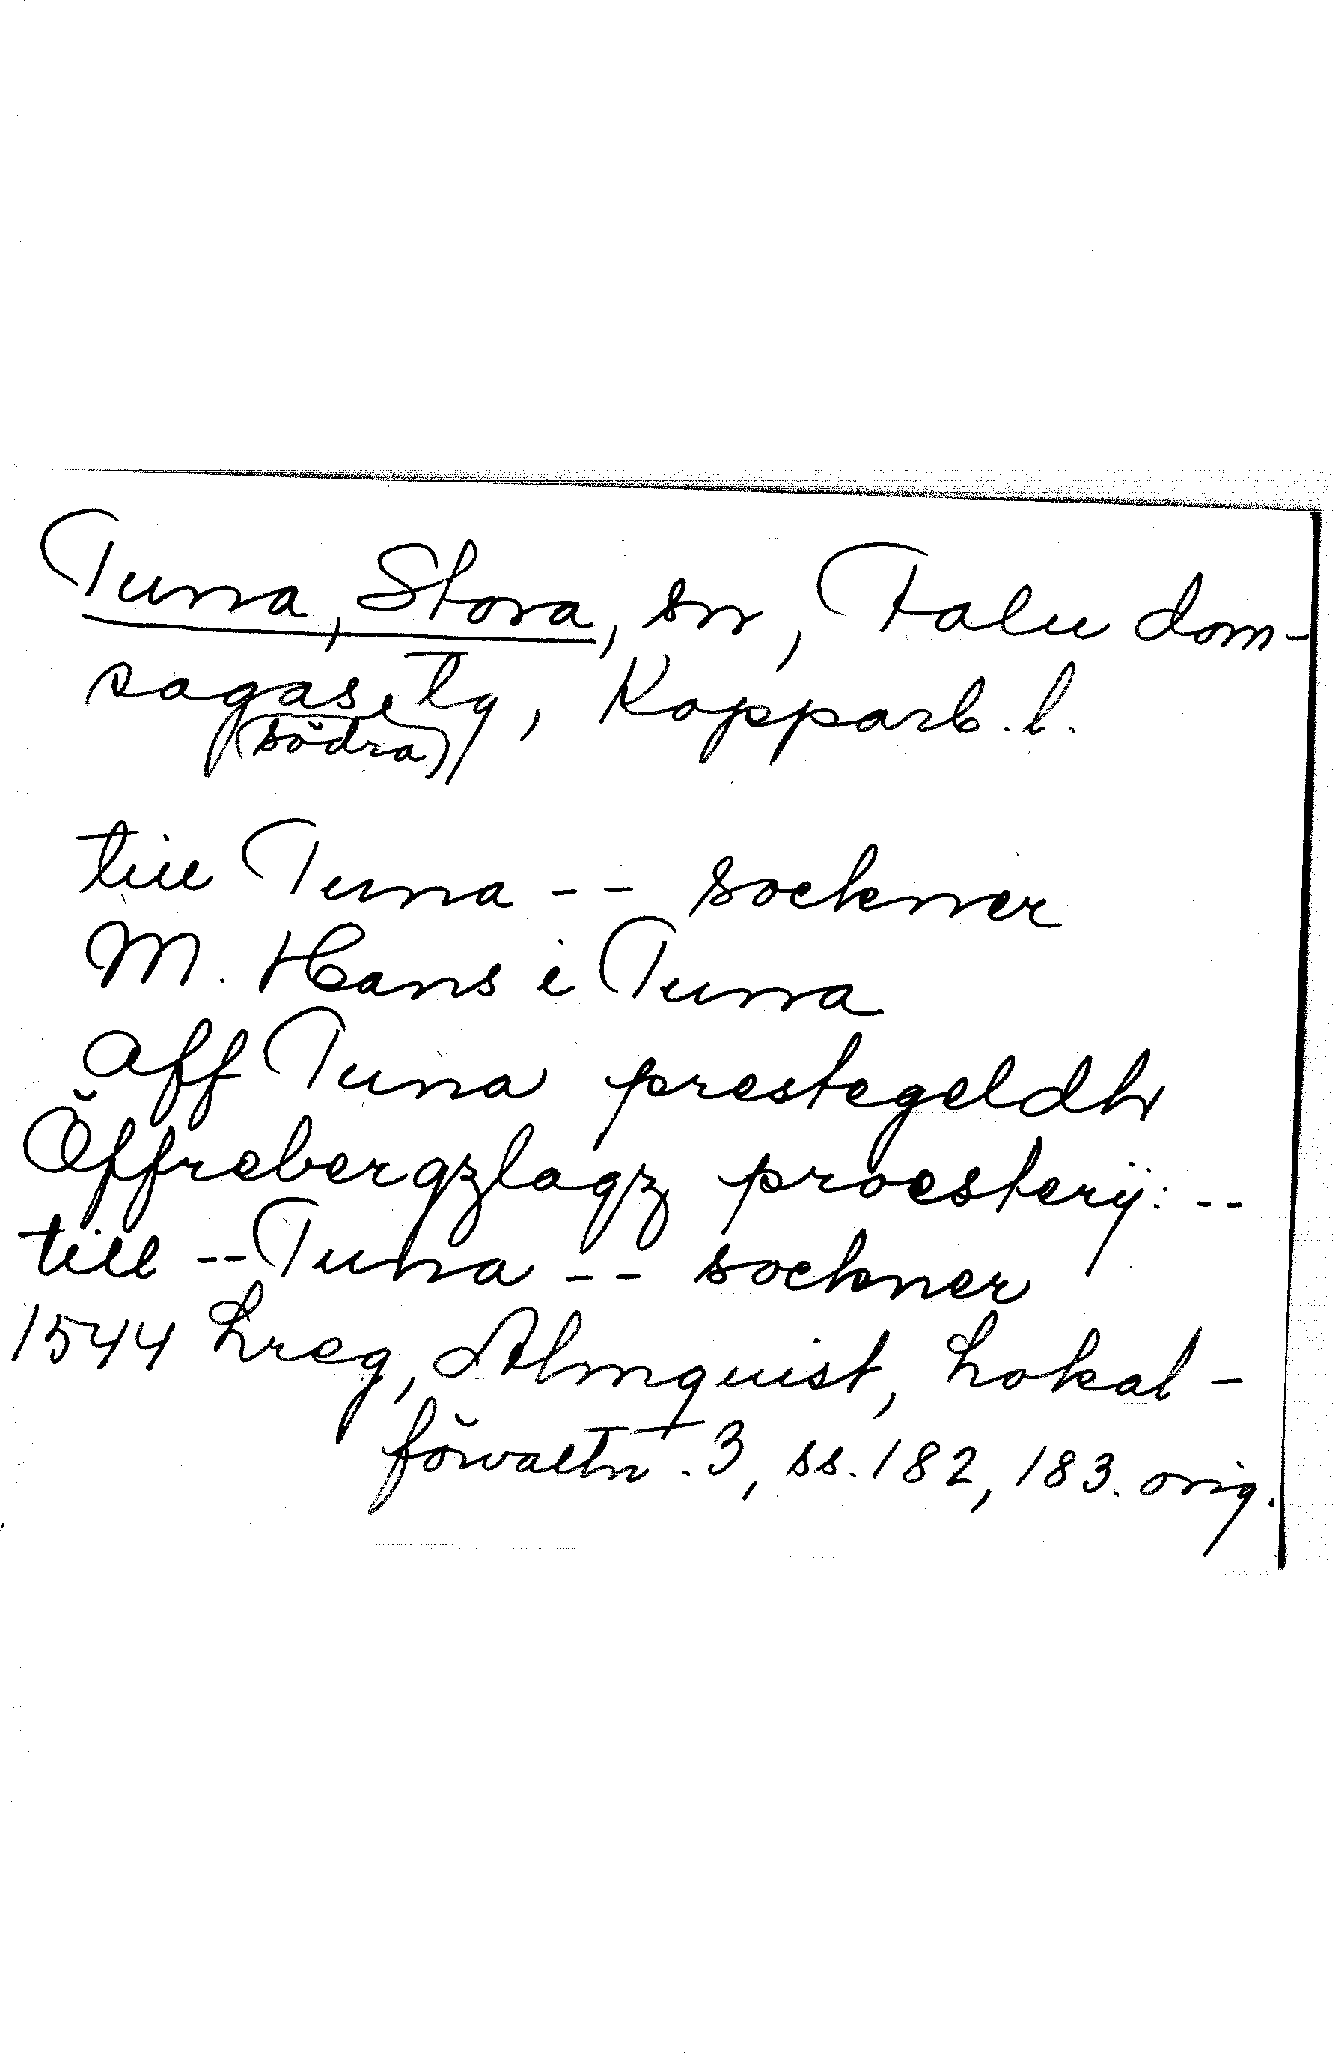 Tuna, Stora, sn, Falu dom-
sagas tg, Kopparb. l.
(södra)
till Tuna -- sockner
M. Hans i Tuna
aff Tuna prestegeldh
Öffrebergzlagz proesterij: --
till -- Tuna -- sockner
1544 Lreg, Almquist, Lokal-
förvaltn. 3, ss. 182, 183. orig.